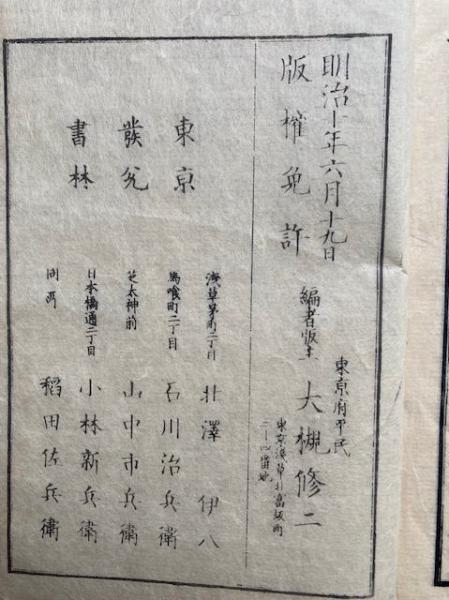 明治十年六月十九日
版権免許
編者版主
東亰府平民
大槻修二
東亰浅草北富坂町
二十四番地
東亰
發兌
書林
浅草茅町二丁目 北澤伊八
馬喰町二丁目 石川治兵衞
芝太神前 山中市兵衞
日本橋通二丁目 小林新兵衞
同所 稲田佐兵衞